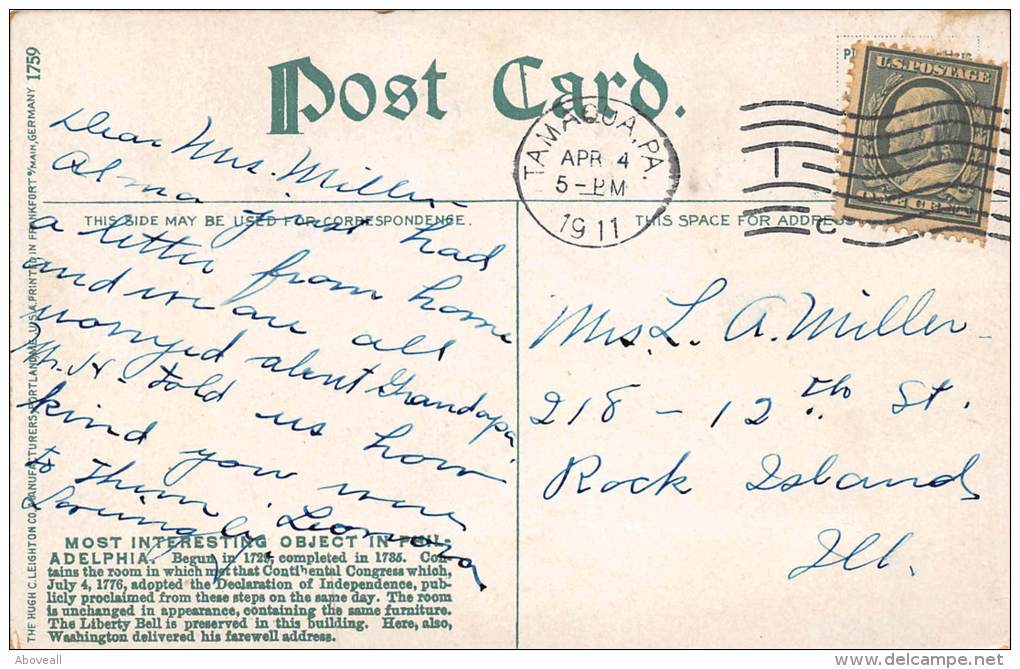 Post Card.
Place Here
U.S. POSTAGE
ONE CENT
TAMAQUA, PA.
APR 4
5-PM
1911
1759
THE HUGH C. LEIGHTON CO., MANUFACTURERS, PORTLAND, ME., U.S.A. PRINTED IN FRANKFORT o/MAIN, GERMANY
THIS SIDE MAY BE USED FOR CORRESPONDENCE.
THIS SPACE FOR ADDRESS
Dear Mrs. Miller-
Alma just had
a letter from home
and we are all
worryed about Grandapa.
Mr. H- told us how
kind you were
to Them.
Lovingly, Leonora
MOST INTERESTING OBJECT IN PHIL-
ADELPHIA. Begun in 1729, completed in 1735. Con-
tains the room in which met that Continental Congress which,
July 4, 1776, adopted the Declaration of Independence, pub-
licly proclaimed from these steps on the same day. The room
is unchanged in appearance, containing the same furniture.
The Liberty Bell is preserved in this building. Here, also,
Washington delivered his farewell address.
Mrs. L. A. Miller-
218 - 12th St.
Rock Island
Ill.
Aboveall
www.delcampe.net